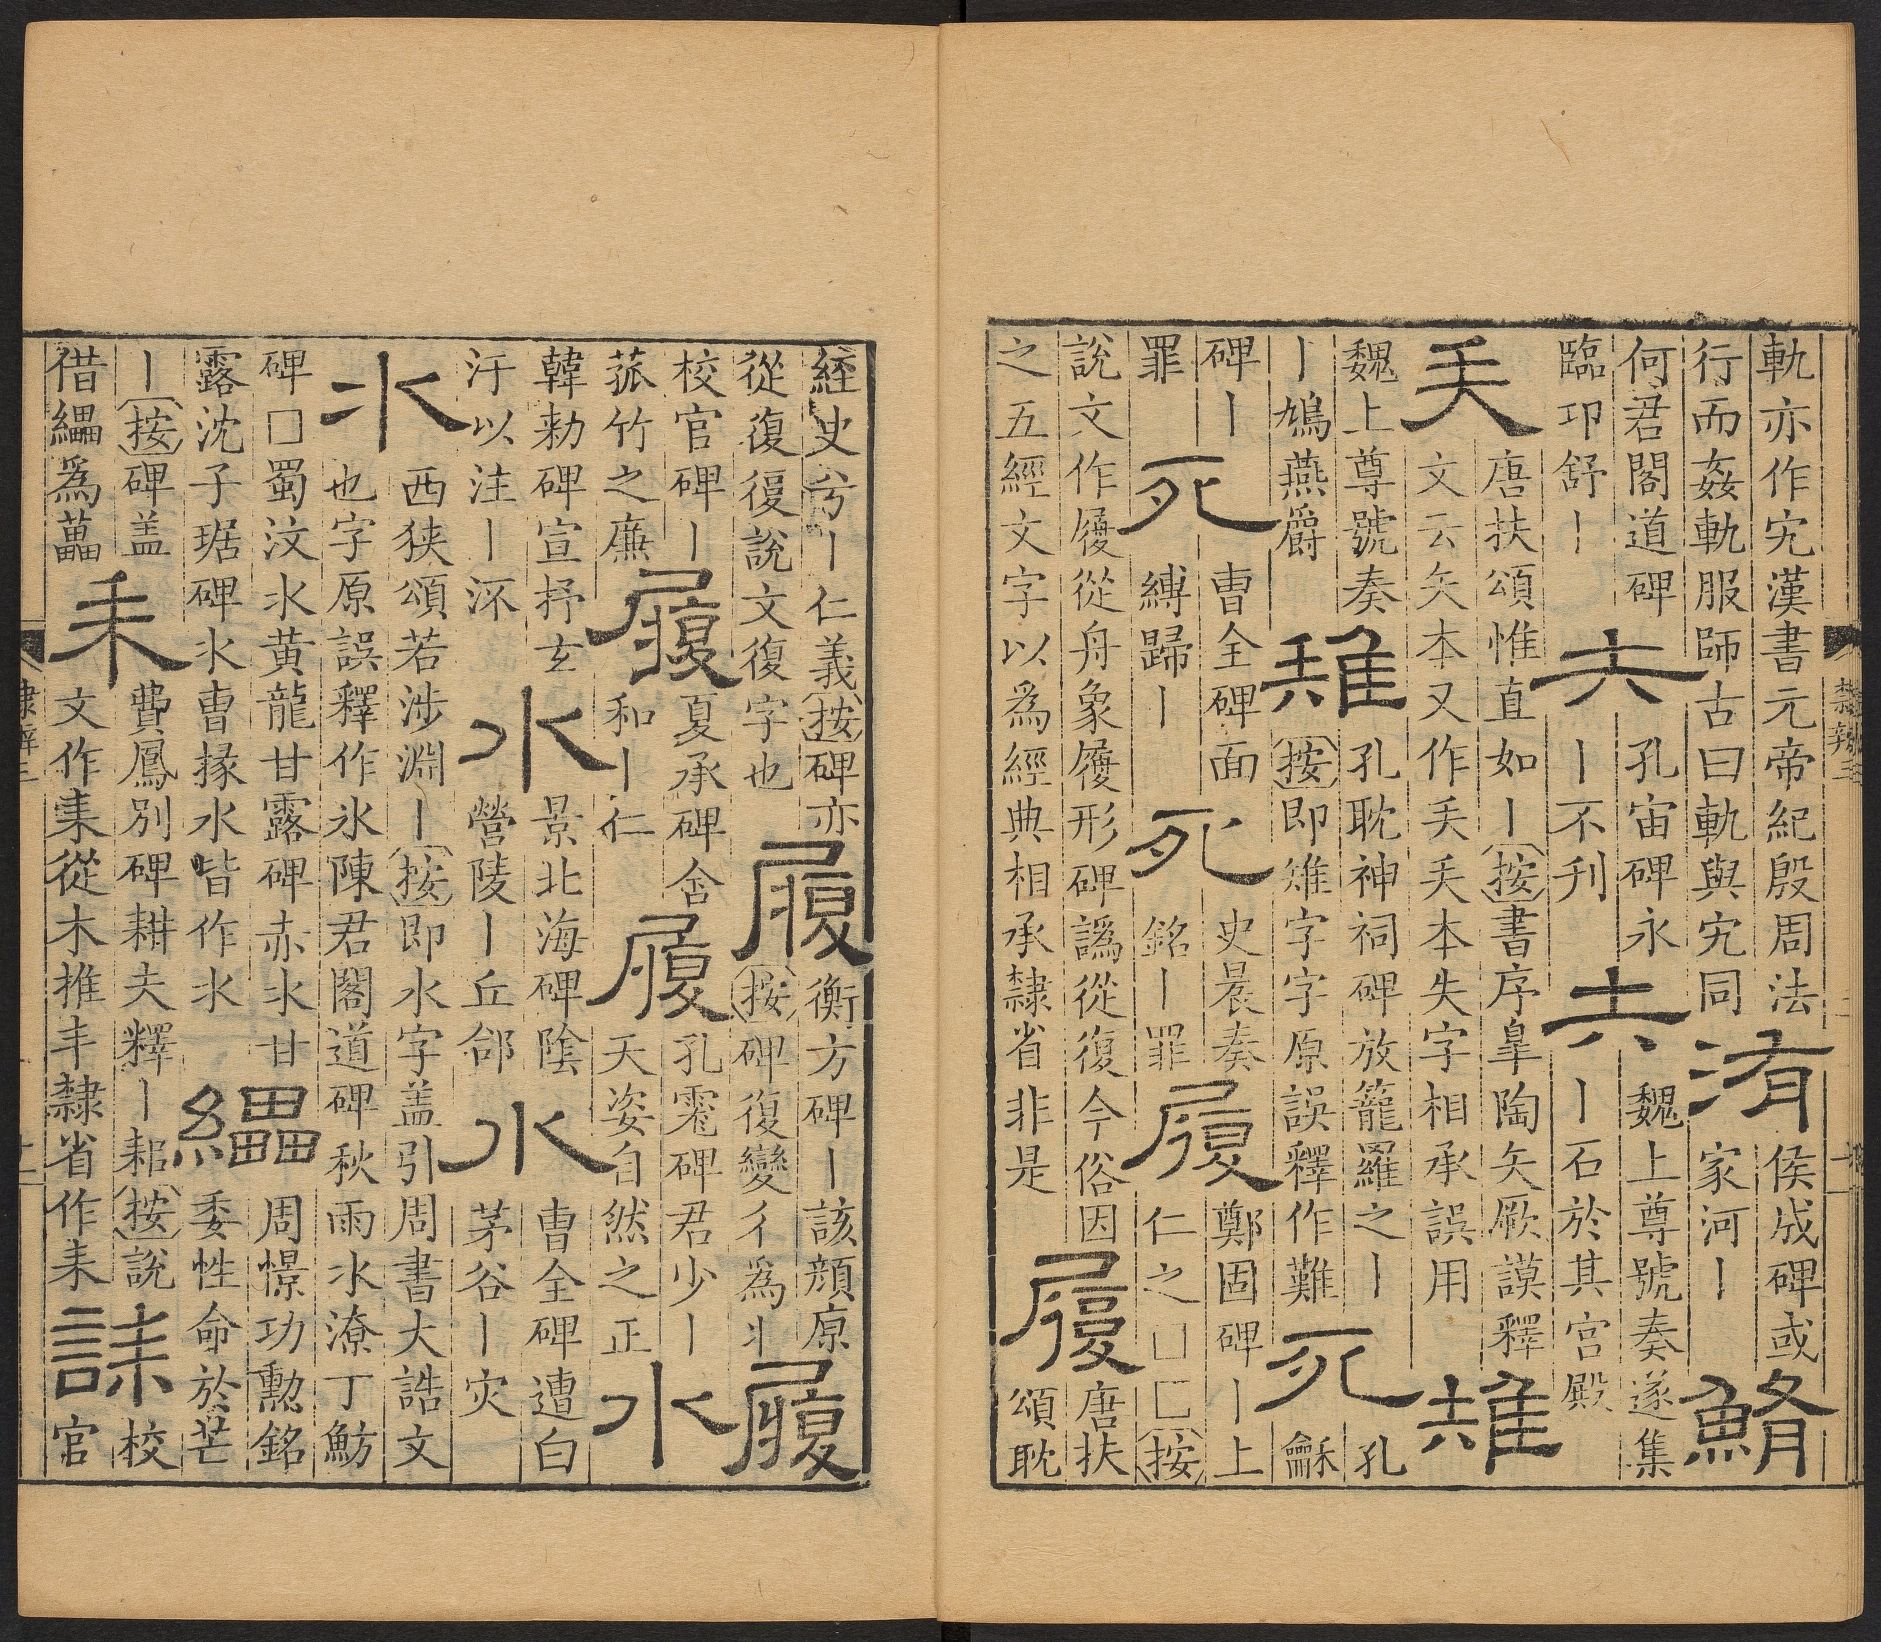 軌亦作宄漢書元帝紀殷周法
行而姦軌服師古曰軌與宄同
洧
侯成碑或
家河｜
鮪
何君閣道碑
臨邛舒｜
矢
孔宙碑永
｜不刋
矢
魏上尊號奏遂集
｜石於其宫殿
𡗗
唐扶頌惟直如｜按書序皐陶矢厥謨釋
文云矢本又作𡗗𡗗本失字相承誤用
雉
魏上尊號奏
｜鳩燕爵
雉
孔耽神祠碑放籠羅之｜
按即雉字字原誤釋作難
死
孔
龢
碑｜
罪
死
曹全碑面
縛歸｜
死
史晨奏
銘｜罪
履
鄭固碑｜上
仁之□匚按
說文作履從舟象履形碑譌從復今俗因
之五經文字以爲經典相承隸省非是
履
唐扶
頌耽
隸辨三
経史兮｜仁義按碑亦
從復復說文復字也
履
衡方碑｜該顔原
按碑復變彳爲丬
履
校官碑｜
菰竹之廉
履
夏承碑舍
和｜仁
履
孔宙碑君少｜
天姿自然之正
水
韓勑碑宣抒玄
汙以注｜沠
水
景北海碑陰
營陵｜丘郃
水
曹全碑遭白
茅谷｜灾
氺
西狹頌若涉淵｜按即水字盖引周書大誥文
也字原誤釋作氷陳君閣道碑秋雨氺潦丁魴
碑□蜀汶氺黄龍甘露碑赤氺甘
露沈子琚碑氺曹掾水皆作氺
纍
周憬功勲銘
委性命於芒
｜按碑盖
借纍爲藟
耒
費鳳别碑耕夫釋｜耜按說
文作耒從木推丰隸省作耒
誄
校
官
隸辨三